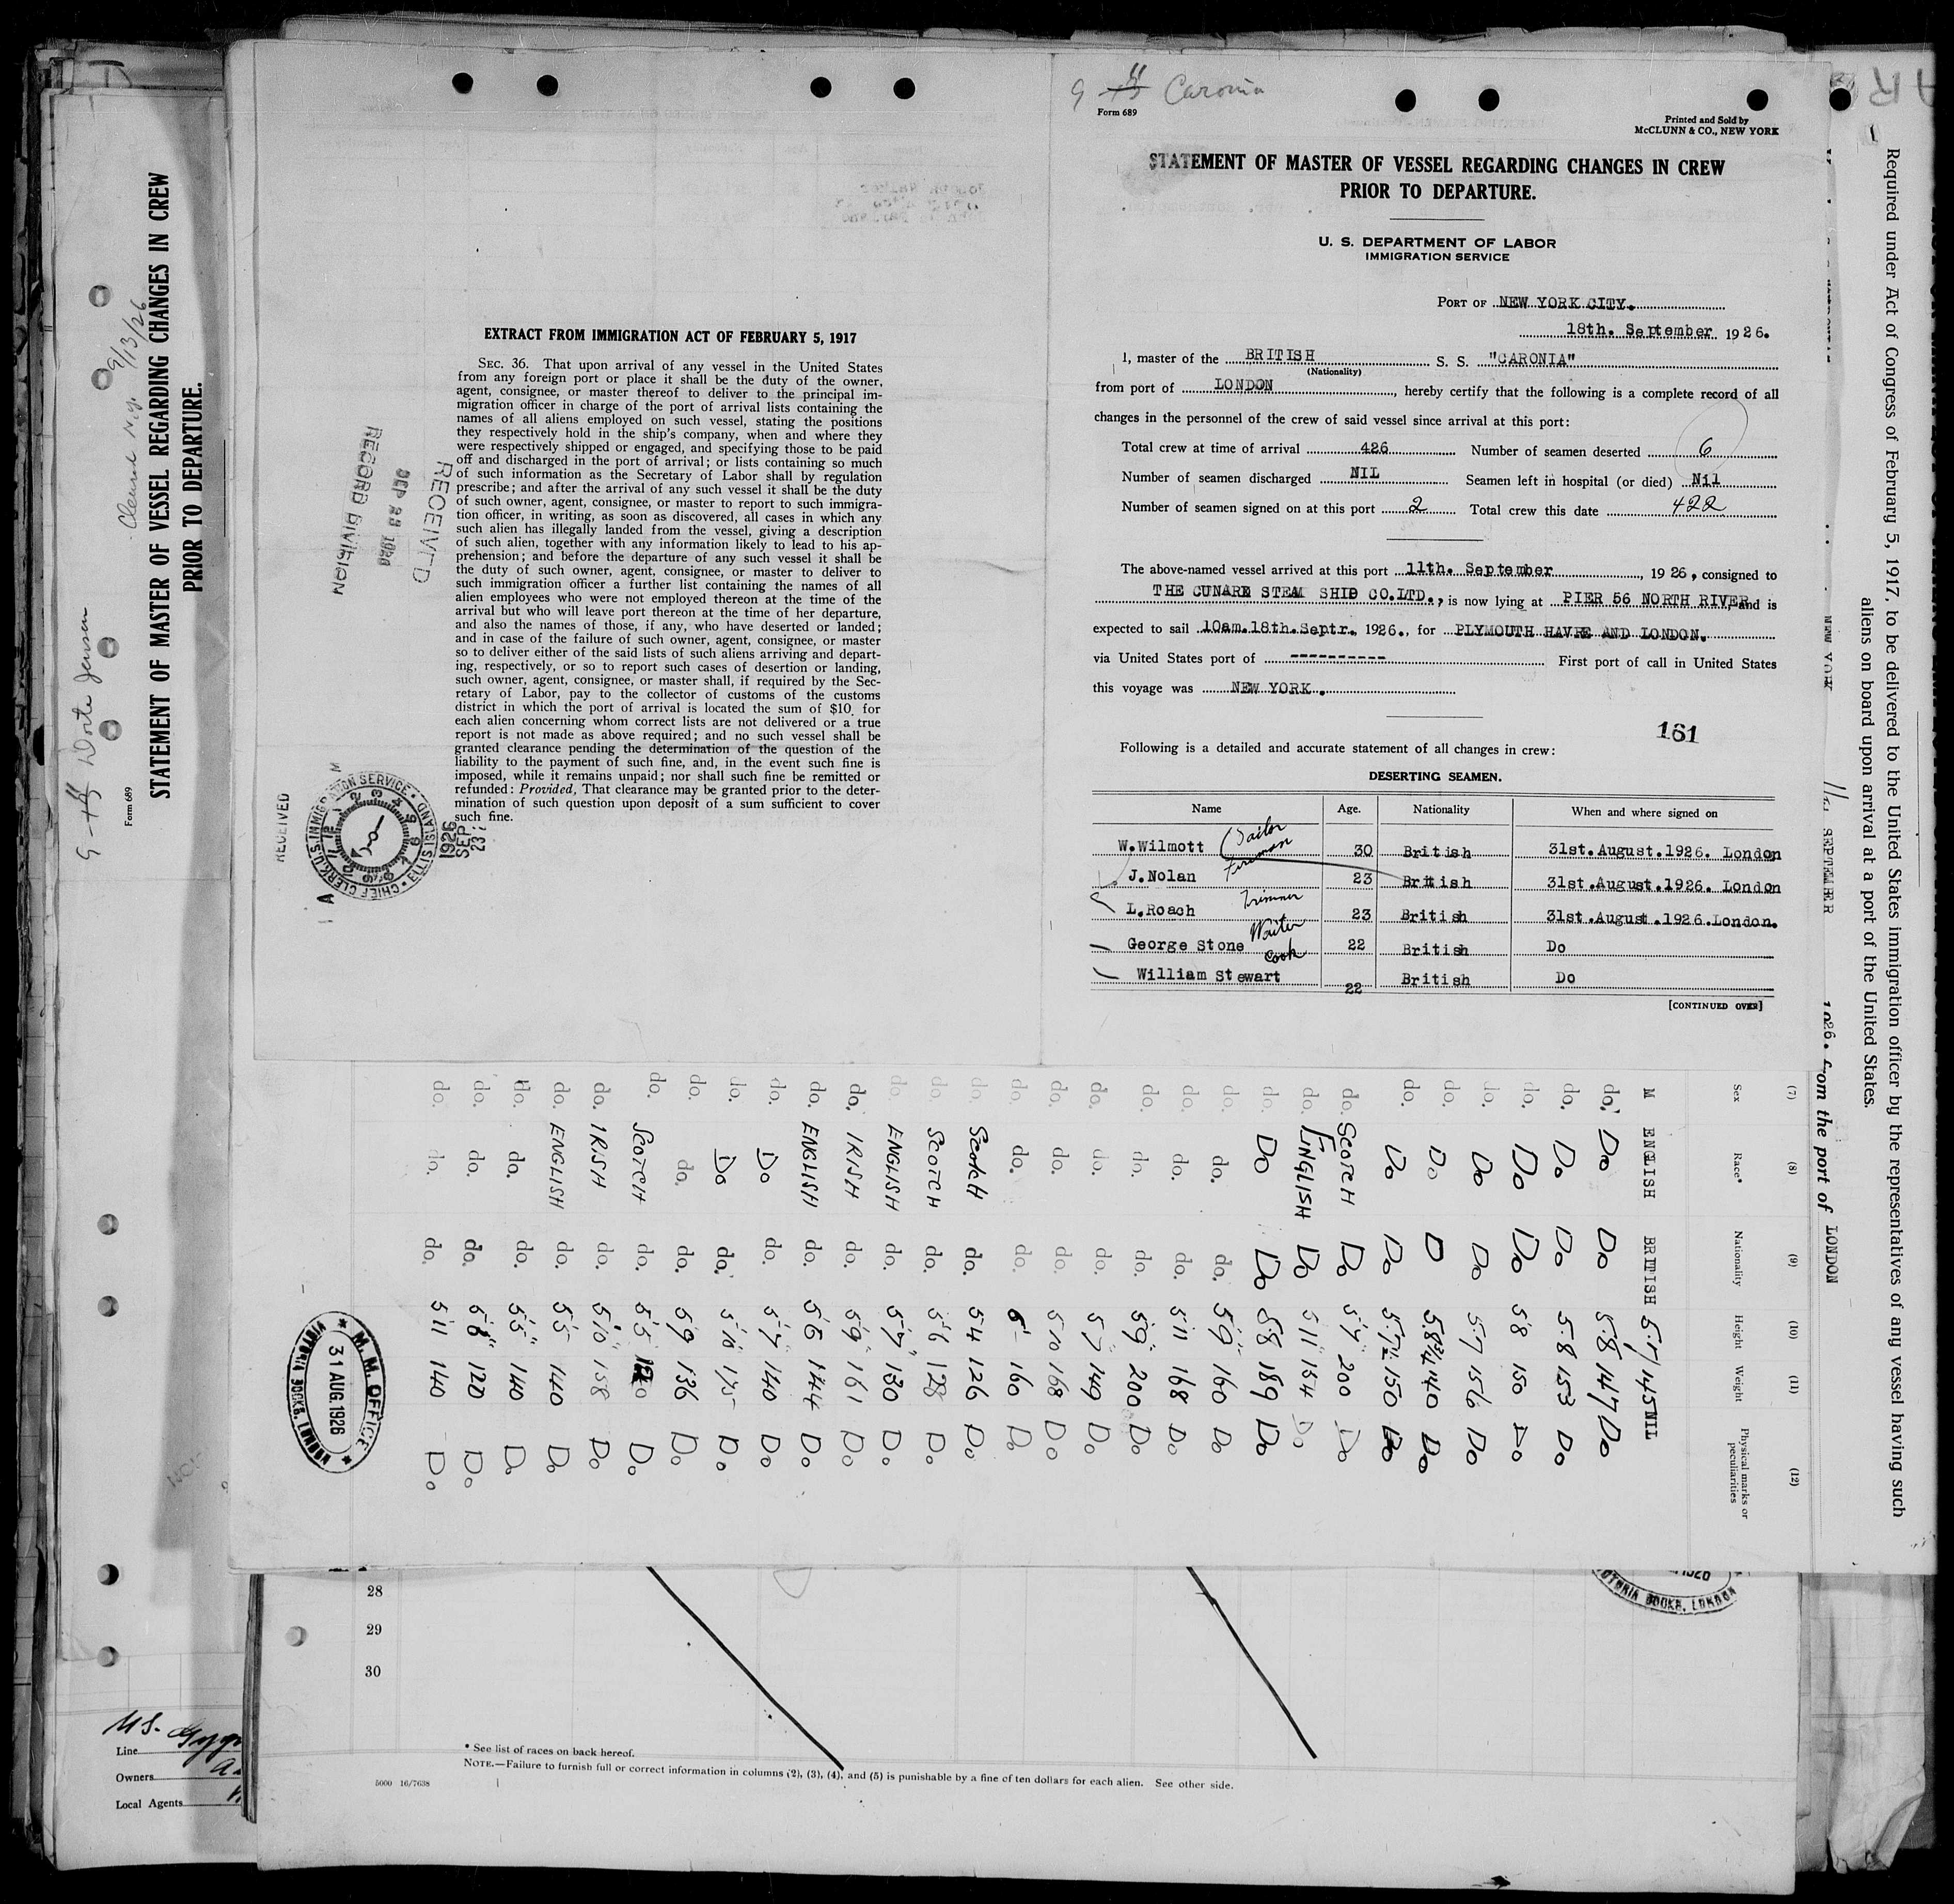 9 - 11 Caronia
Form 689
Printed and Sold by
McCLUNN & CO., NEW YORK
STATEMENT OF MASTER OF VESSEL REGARDING CHANGES IN CREW
PRIOR TO DEPARTURE.
U. S. DEPARTMENT OF LABOR
IMMIGRATION SERVICE
PORT OF NEW YORK CITY.
18th. September 1926.
I, master of the BRITISH S. S. "CARONIA"
(Nationality)
from port of LONDON, hereby certify that the following is a complete record of all
changes in the personnel of the crew of said vessel since arrival at this port:
Total crew at time of arrival 426 Number of seamen deserted 6
Number of seamen discharged NIL Seamen left in hospital (or died) Nil
Number of seamen signed on at this port 2 Total crew this date 422
The above-named vessel arrived at this port 11th. September, 1926, consigned to
THE CUNARD STEAM SHIP CO.LTD., is now lying at PIER 56 NORTH RIVER and is
expected to sail 10am.18th.Septr. 1926., for PLYMOUTH HAVRE AND LONDON.
via United States port of ---------- First port of call in United States
this voyage was NEW YORK.
161
Following is a detailed and accurate statement of all changes in crew:
DESERTING SEAMEN.
Name Age. Nationality When and where signed on
W.Wilmott Sailor 30 British 31st.August.1926. London
J.Nolan Fireman 23 British 31st.August.1926. London
L.Roach Trimmer 23 British 31st.August.1926.London.
George Stone Waiter 22 British Do
William Stewart Cook 22 British Do
[CONTINUED OVER]
EXTRACT FROM IMMIGRATION ACT OF FEBRUARY 5, 1917
SEC. 36. That upon arrival of any vessel in the United States
from any foreign port or place it shall be the duty of the owner,
agent, consignee, or master thereof to deliver to the principal im-
migration officer in charge of the port of arrival lists containing the
names of all aliens employed on such vessel, stating the positions
they respectively hold in the ship's company, when and where they
were respectively shipped or engaged, and specifying those to be paid
off and discharged in the port of arrival; or lists containing so much
of such information as the Secretary of Labor shall by regulation
prescribe; and after the arrival of any such vessel it shall be the duty
of such owner, agent, consignee, or master to report to such immigra-
tion officer, in writing, as soon as discovered, all cases in which any
such alien has illegally landed from the vessel, giving a description
of such alien, together with any information likely to lead to his ap-
prehension; and before the departure of any such vessel it shall be
the duty of such owner, agent, consignee, or master to deliver to
such immigration officer a further list containing the names of all
alien employees who were not employed thereon at the time of the
arrival but who will leave port thereon at the time of her departure,
and also the names of those, if any, who have deserted or landed;
and in case of the failure of such owner, agent, consignee, or master
so to deliver either of the said lists of such aliens arriving and depart-
ing, respectively, or so to report such cases of desertion or landing,
such owner, agent, consignee, or master shall, if required by the Sec-
retary of Labor, pay to the collector of customs of the customs
district in which the port of arrival is located the sum of $10 for
each alien concerning whom correct lists are not delivered or a true
report is not made as above required; and no such vessel shall be
granted clearance pending the determination of the question of the
liability to the payment of such fine, and, in the event such fine is
imposed, while it remains unpaid; nor shall such fine be remitted or
refunded: Provided, That clearance may be granted prior to the deter-
mination of such question upon deposit of a sum sufficient to cover
such fine.
RECEIVED
SEP 23 1926
RECORD DIVISION
RECEIVED
CHIEF CLERK U.S. IMMIGRATION SERVICE ELLIS ISLAND
1926
SEP
23
Required under Act of Congress of February 5, 1917, to be delivered to the United States immigration officer by the representatives of any vessel having such
aliens on board upon arrival at a port of the United States.
NEW YORK 11th SEPTEMBER 1926. from the port of LONDON
(7) (8) (9) (10) (11) (12)
Sex Race* Nationality Height Weight Physical marks or peculiarities
M ENGLISH BRITISH 5.7 145 NIL
do. Do Do 5.8 147 Do
do. Do Do 5.8 153 Do
do. Do Do 5.8 150 Do
do. Do Do 5.7 156 Do
do. Do D 5.8¾ 140 Do
do. Do Do 5.7½ 150 Do
do. SCOTCH Do 5'7" 200 Do
do. ENGLISH Do 5'11" 154 Do
do. Do Do 5.8 189 Do
do. do. do. 5'9" 160 Do
do. do. do. 5'11 168 Do
do. do. do. 5'9" 200 Do
do. do. do. 5'7 149 Do
do. do. do. 5'10 168 Do
do. do. do. 160 Do
do. Scotch do. 5'4 126 Do
do. SCOTCH do. 5'6 128 Do
do. ENGLISH do. 5'7" 130 Do
do. IRISH do. 5'9" 161 Do
do. ENGLISH do. 5'6 144 Do
do. Do do. 5'7" 140 Do
do. Do do. 5'10 175 Do
do. do. do. 5'9 136 Do
do. SCOTCH do. 5'5 Do
do. IRISH do. 5'10" 158 Do
do. ENGLISH do. 5'5 140 Do
do. do. do. 5'5" 140 Do
do. do. do. 5'6" 120 Do
do. do. do. 5'11 140 Do
M. M. OFFICE
31 AUG. 1926
VICTORIA DOCKS, LONDON
VICTORIA DOCKS, LONDON
28
29
30
* See list of races on back hereof.
NOTE.—Failure to furnish full or correct information in columns (2), (3), (4), and (5) is punishable by a fine of ten dollars for each alien. See other side.
5000 16/7638
Form 689
STATEMENT OF MASTER OF VESSEL REGARDING CHANGES IN CREW
PRIOR TO DEPARTURE.
9/13/26
Line
Owners
Local Agents